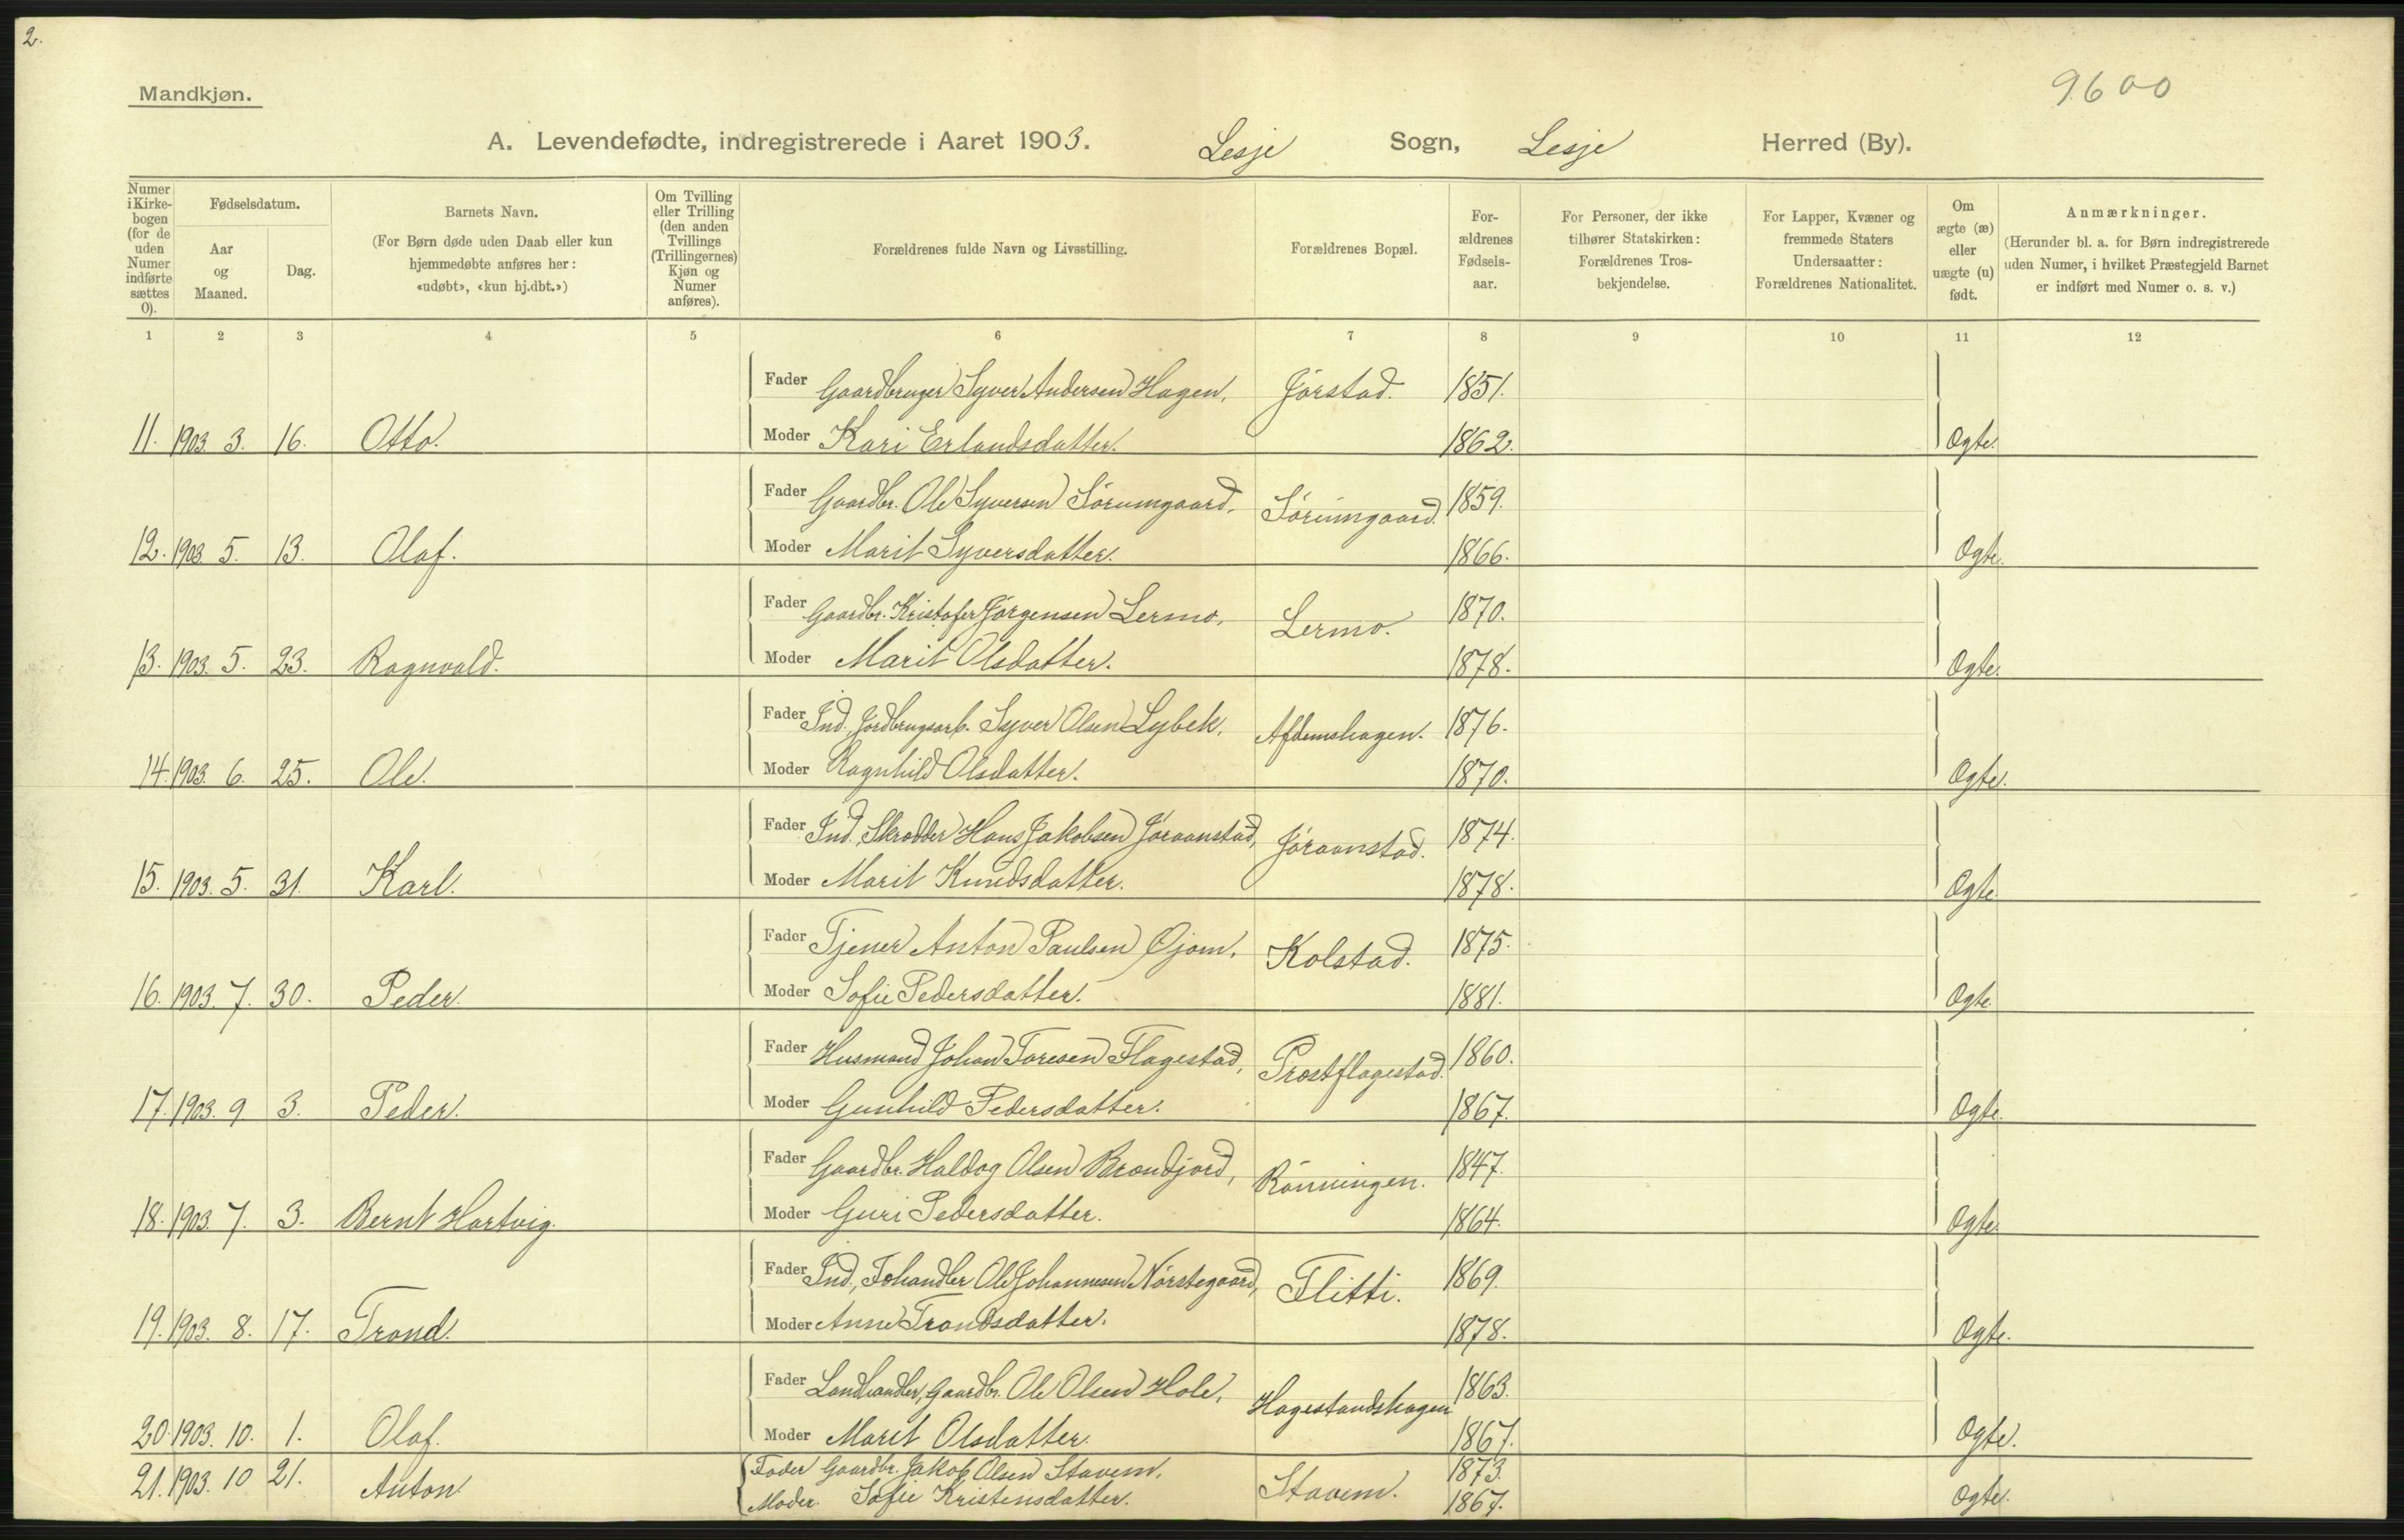 2.
Mandkjøn.
9600
A. Levendefødte, indregistrerede i Aaret 1903. Lesje Sogn, Lesje Herred (By).
Numer i Kirkebogen (for de uden Numer indførte sættes 0).
Fødselsdatum.
Aar og Maaned.
Dag.
Barnets Navn.
(For Børn døde uden Daab eller kun hjemmedøbte anføres her: «udøbt», «kun hj.dbt.»)
Om Tvilling eller Trilling (den anden Tvillings (Trillingernes) Kjøn og Numer anføres).
Forældrenes fulde Navn og Livsstilling.
Forældrenes Bopæl.
Forældrenes Fødselsaar.
For Personer, der ikke tilhører Statskirken: Forældrenes Trosbekjendelse.
For Lapper, Kvæner og fremmede Staters Undersaatter: Forældrenes Nationalitet.
Om ægte (æ) eller uægte (u) født.
Anmærkninger.
(Herunder bl. a. for Børn indregistrerede uden Numer, i hvilket Præstegjeld Barnet er indført med Numer o. s. v.)
1 2 3 4 5 6 7 8 9 10 11 12
Fader Gaardbruger Syver Andersen Hagen, Jørstad. 1851.
11. 1903. 3. 16. Otto. Moder Kari Erlandsdatter. 1862. Ægte.
Fader Gaardbr. Ole Syversen Sørumgaard, Sørumgaard. 1859.
12. 1903. 5. 13. Olaf. Moder Marit Syversdatter. 1866. Ægte.
Fader Gaardbr. Kristofer Jørgensen Lermo, Lermo. 1870.
13. 1903. 5. 23. Ragnvald. Moder Marit Olsdatter. 1878. Ægte.
Fader Ind., Jordbrugsarb. Syver Olsen Lybek, Afdemshagen. 1876.
14. 1903. 6. 25. Ole. Moder Ragnhild Olsdatter. 1870. Ægte.
Fader Ind., Skrædder Hans Jakobsen Jøraanstad, Jøraanstad. 1874.
15. 1903. 5. 31. Karl. Moder Marit Knudsdatter. 1878. Ægte.
Fader Tjener Anton Paulsen Øjom, Kolstad. 1875.
16. 1903. 7. 30. Peder. Moder Sofie Pedersdatter. 1881. Ægte.
Fader Husmand Johan Toresen Flagestad, Prostflagestad. 1860.
17. 1903. 9 3. Peder. Moder Gunhild Pedersdatter. 1867. Ægte.
Fader Gaardbr. Haldog Olsen Brændjord, Rønningen. 1847.
18. 1903. 7. 3. Bernt Hartvig. Moder Guri Pedersdatter. 1864. Ægte.
Fader Ind., Ole Johannesen Nørstegaard, Flitti. 1869.
19. 1903. 8. 17. Trond. Moder Anne Trondsdatter. 1878. Ægte.
Fader Landhandler, Gaardbr. Ole Olsen Hole, Hagestandshagen 1863.
20. 1903. 10. 1. Olaf. Moder Marit Olsdatter. 1867. Ægte.
Fader Gaardbr. Jakob Olsen Stavem, Stavem. 1873.
21. 1903. 10 21. Anton Moder. Sofie Kristensdatter. 1867. Ægte.